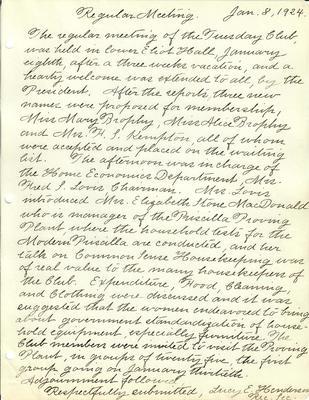 Regular Meeting. Jan. 8, 1924.
The regular meeting of the Tuesday Club
was held in lower Eliot Hall January
eighth, after a three weeks vacation, and a
hearty welcome was extended to all, by the
President. After the reports, three new
names were proposed for membership,
Miss Mary Brophy, Miss Alice Brophy
and Mrs. H. S. Kempton, all of whom
were accepted and placed on the waiting
list. The afternoon was in charge of
the Home Economics Department, Mrs.
Fred S. Lovis Chairman. Mrs. Lovis
introduced Mrs. Elizabeth Stone MacDonald
who is manager of the Priscilla Proving
Plant, where the household tests for the
Modern Priscilla are conducted, and her
talk on Common Sense Housekeeping was
of real value to the many housekeepers of
the Club. Expenditure, Food, Cleaning,
and Clothing were discussed and it was
suggested that the women endeavored to bring
about government standardization of house-
hold equipment especially furniture. The
Club members were invited to visit the Proving
Plant, in groups of twenty five, the first
group going on January thirtieth.
Adjournment followed,
Respectfully submitted, Lucy E. Henderson
Rec. Sec.